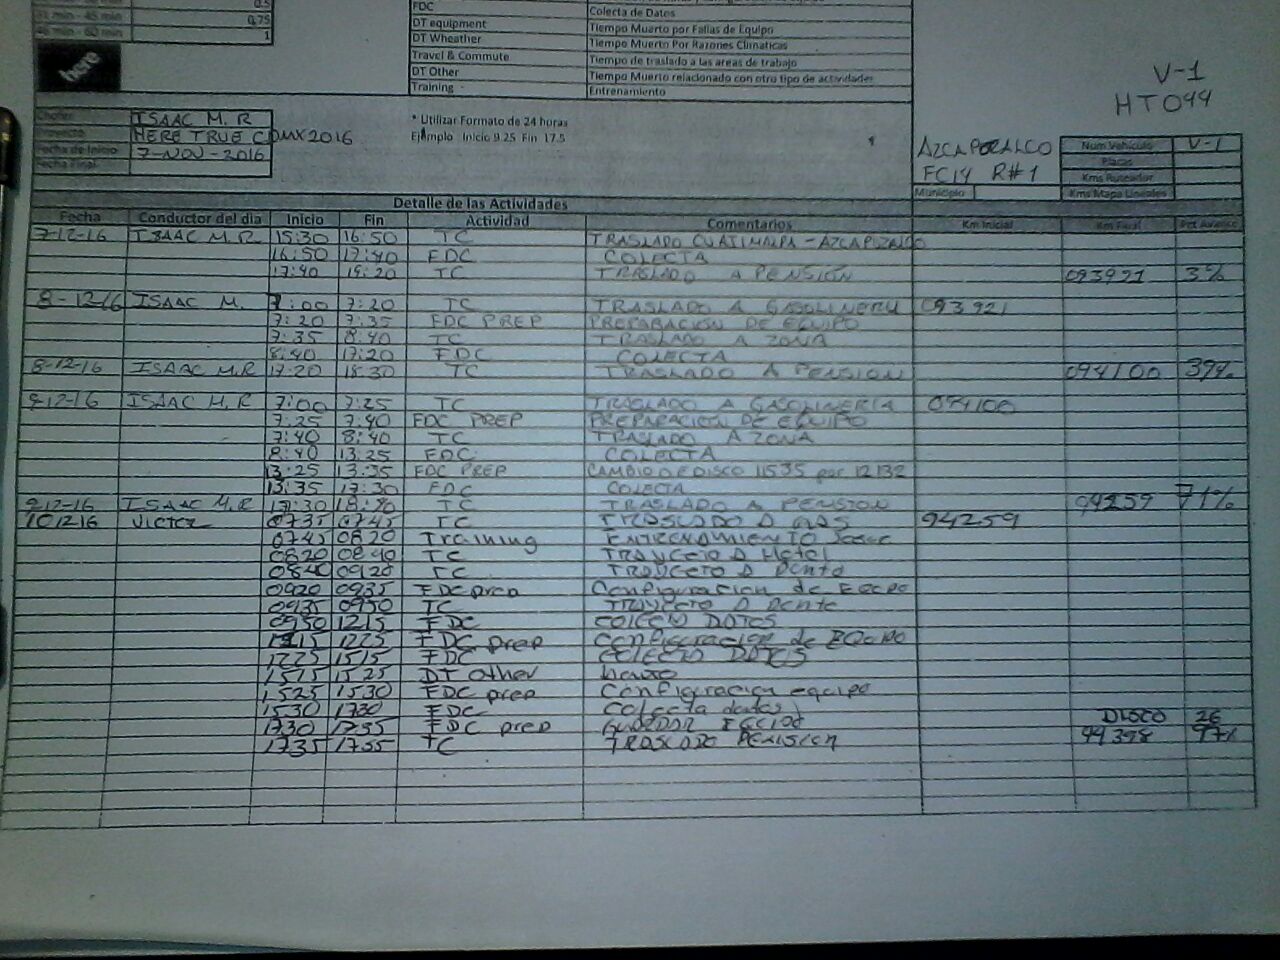 0.5
31 min - 45 min 0.75
46 min - 60 min 1
FDC Colecta de Datos
DT equipment Tiempo Muerto por Fallas de Equipo
DT Wheather Tiempo Muerto Por Razones Climaticas
Travel & Commute Tiempo de traslado a las areas de trabajo
DT Other Tiempo Muerto relacionado con otro tipo de actividades
Training Entrenamiento
here
V-1
HT044
Chofer ISAAC M. R
Proyecto HERE TRUE CDMX 2016
Fecha de Inicio 7-NOV-2016
Fecha Final
* Utilizar Formato de 24 horas
Ejemplo Inicio 9.25 Fin 17.5
AZCAPOZALCO
FC14 R#1
Municipio
Num Vehiculo V-1
Placas
Kms Ruteador
Kms Mapa Lineales
Detalle de las Actividades
Fecha Conductor del dia Inicio Fin Actividad Comentarios Km Inicial Km Final Pct Avance
7-12-16 ISAAC M.R 15:30 16:50 TC TRASLADO CUAJIMALPA - AZCAPOZALCO
16:50 17:40 FDC COLECTA
17:40 19:20 TC TRASLADO A PENSIÓN 093921 3%
8-12-16 ISAAC M. 7:00 7:20 TC TRASLADO A GASOLINERU 093921
7:20 7:35 FDC PREP PREPARACION DE EQUIPO
7:35 8:40 TC TRASLADO A ZONA
8:40 17:20 FDC COLECTA
8-12-16 ISAAC M.R 17:20 18:30 TC TRASLADO A PENSION 094100 39%
9-12-16 ISAAC M. R 7:00 7:25 TC TRASLADO A GASOLINERIA 094100
7:25 7:40 FDC PREP PREPARACION DE EQUIPO
7:40 8:40 TC TRASLADO A ZONA
8:40 13:25 FDC COLECTA
13:25 13:35 FDC PREP CAMBIO DE DISCO 11535 por 12132
13:35 17:30 FDC COLECTA
9-12-16 ISAAC M.R 17:30 18:40 TC TRASLADO A PENSION 94259 71%
101216 Victor 0735 0745 TC TRASLADO A GAS 94259
0745 0820 Training ENTRENAMIENTO
0820 0840 TC TRAYCETO A Hotel
0840 0920 TC TRAYCETO A Punto
0920 0935 FDC prep Configuracion de
0935 0950 TC TRAYCETO A Punto
0950 1215 FDC COLECTO DATOS
1215 1225 FDC prep Configuracion de EQUIPO
1225 1515 FDC COLECTO DATOS
1515 1525 DT Other baño
1525 1530 FDC prep Configuracion equipo
1530 1730 FDC Colecta datos
1730 1735 FDC prep GUARDAR DISCO 26
1735 1755 TC TRASLADO PENSION 94398 97%